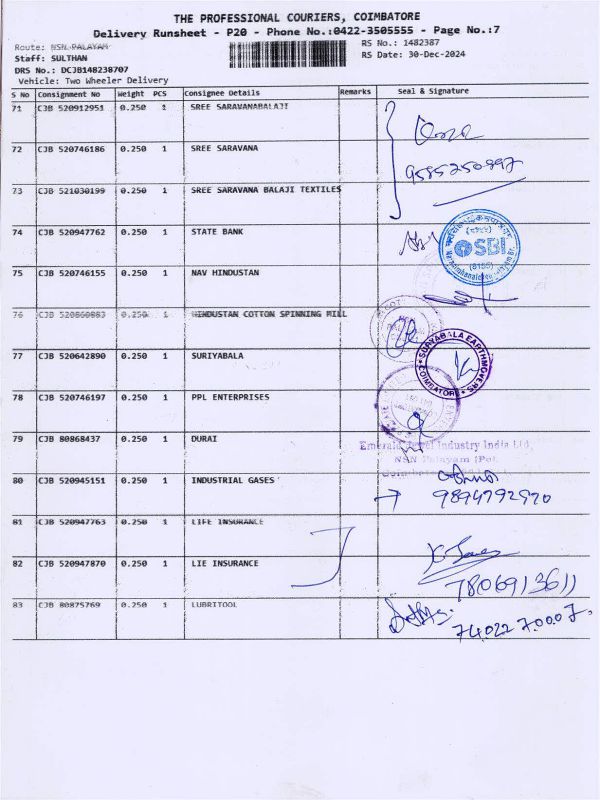 THE PROFESSIONAL COURIERS, COIMBATORE
Delivery Runsheet - P20 - Phone No.:0422-3505555 - Page No.:7
Route: NSN PALAYAM
RS No.: 1482387
Staff: SULTHAN
RS Date: 30-Dec-2024
DRS No.: DCJB148238707
Vehicle: Two Wheeler Delivery
S No Consignment No Weight PCS Consignee Details Remarks Seal & Signature
71 CJB 520912951 0.250 1 SREE SARAVANABALAJI
72 CJB 520746186 0.250 1 SREE SARAVANA
9585250997
73 CJB 521030199 0.250 1 SREE SARAVANA BALAJI TEXTILES
74 CJB 520947762 0.250 1 STATE BANK
SBI
75 CJB 520746155 0.250 1 NAV HINDUSTAN
76 CJB 520860883 0.250 1 HINDUSTAN COTTON SPINNING MILL
77 CJB 520642890 0.250 1 SURIYABALA
SURYABALA EARTHMOVERS
COIMBATORE
78 CJB 520746197 0.250 1 PPL ENTERPRISES
79 CJB 80868437 0.250 1 DURAI
Emerald Jewel Industry India Ltd
NSN Palayam (Po),
80 CJB 520945151 0.250 1 INDUSTRIAL GASES
9894792970
81 CJB 520947763 0.250 1 LIFE INSURANCE
82 CJB 520947870 0.250 1 LIE INSURANCE
7806913611
83 CJB 80875769 0.250 1 LUBRITOOL
7402270007